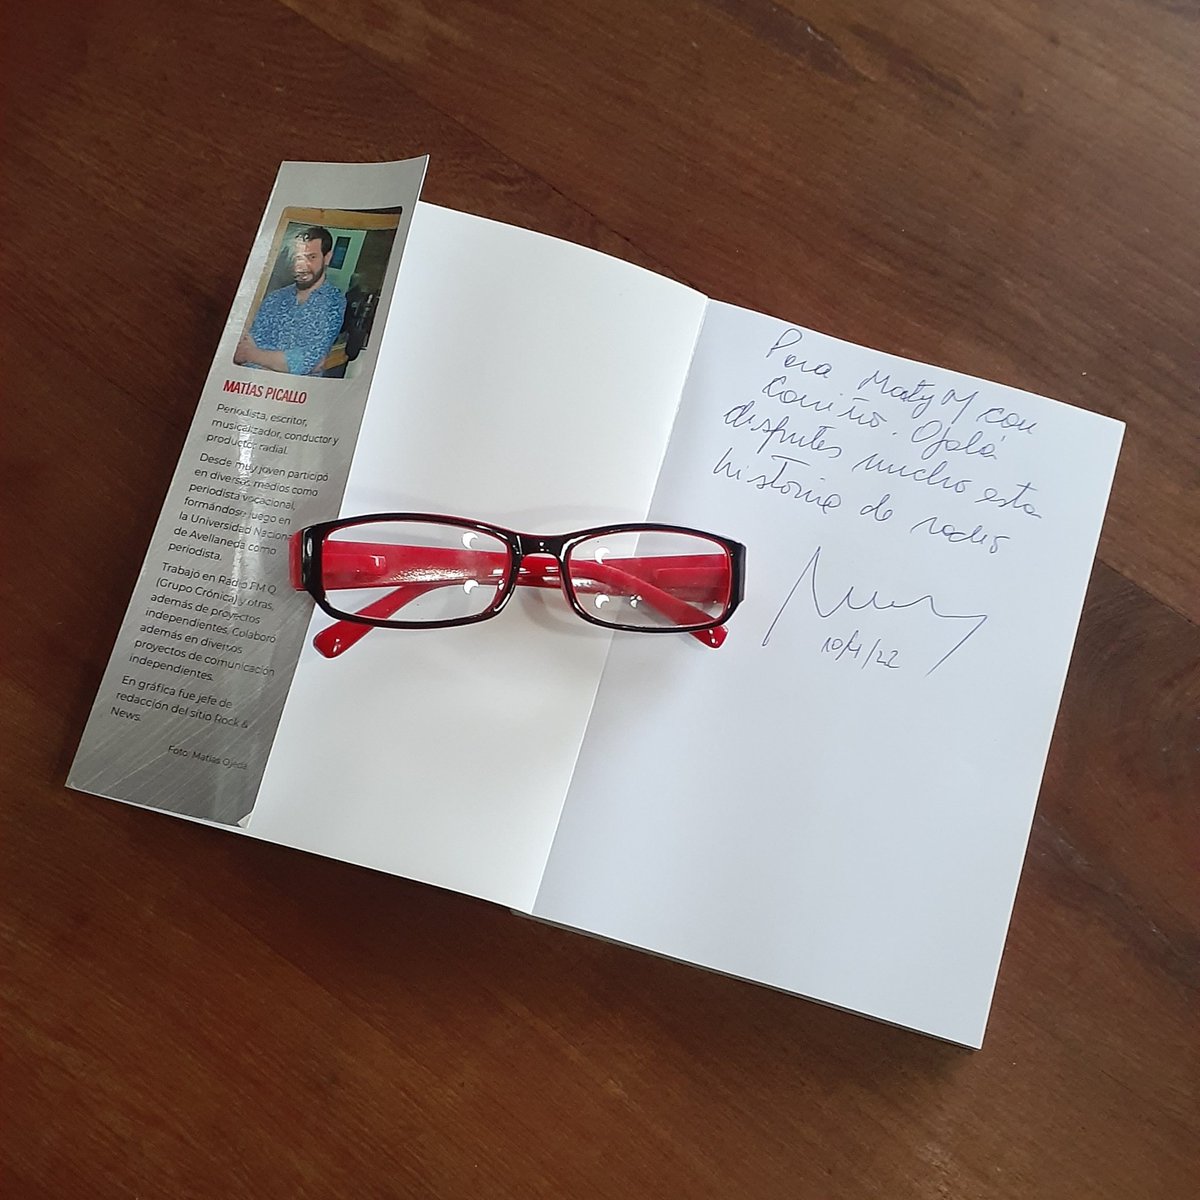 MATÍAS PICALLO
Periodista, escritor,
musicalizador, conductor y
productor radial.
Desde muy joven participó
en diversos medios como
periodista vocacional,
formándose luego en
la Universidad Naciona
de Avellaneda como
periodista.
Trabajó en Radio FM Q
(Grupo Crónica) y otras,
además de proyectos
independientes. Colaboró
además en diversos
proyectos de comunicación
independientes.
En gráfica fue jefe de
redacción del sitio Rock &
News.
Foto: Matías Ojeda
Para Maty M con
Cariño. Ojalá
disfrutes mucho esta
historia de radio
10/4/22